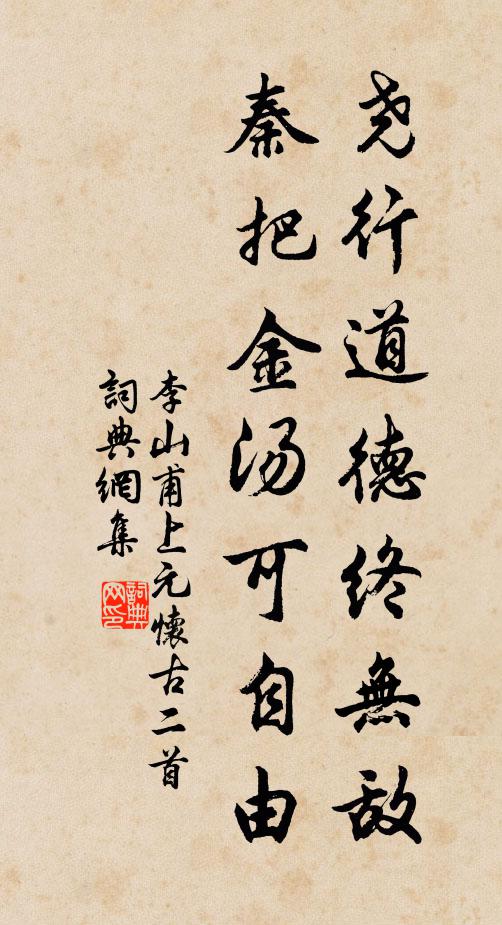 尧行道德终無敌
秦把金汤可自由
李山甫上元懷古二首
詞典網集
詞典
网印